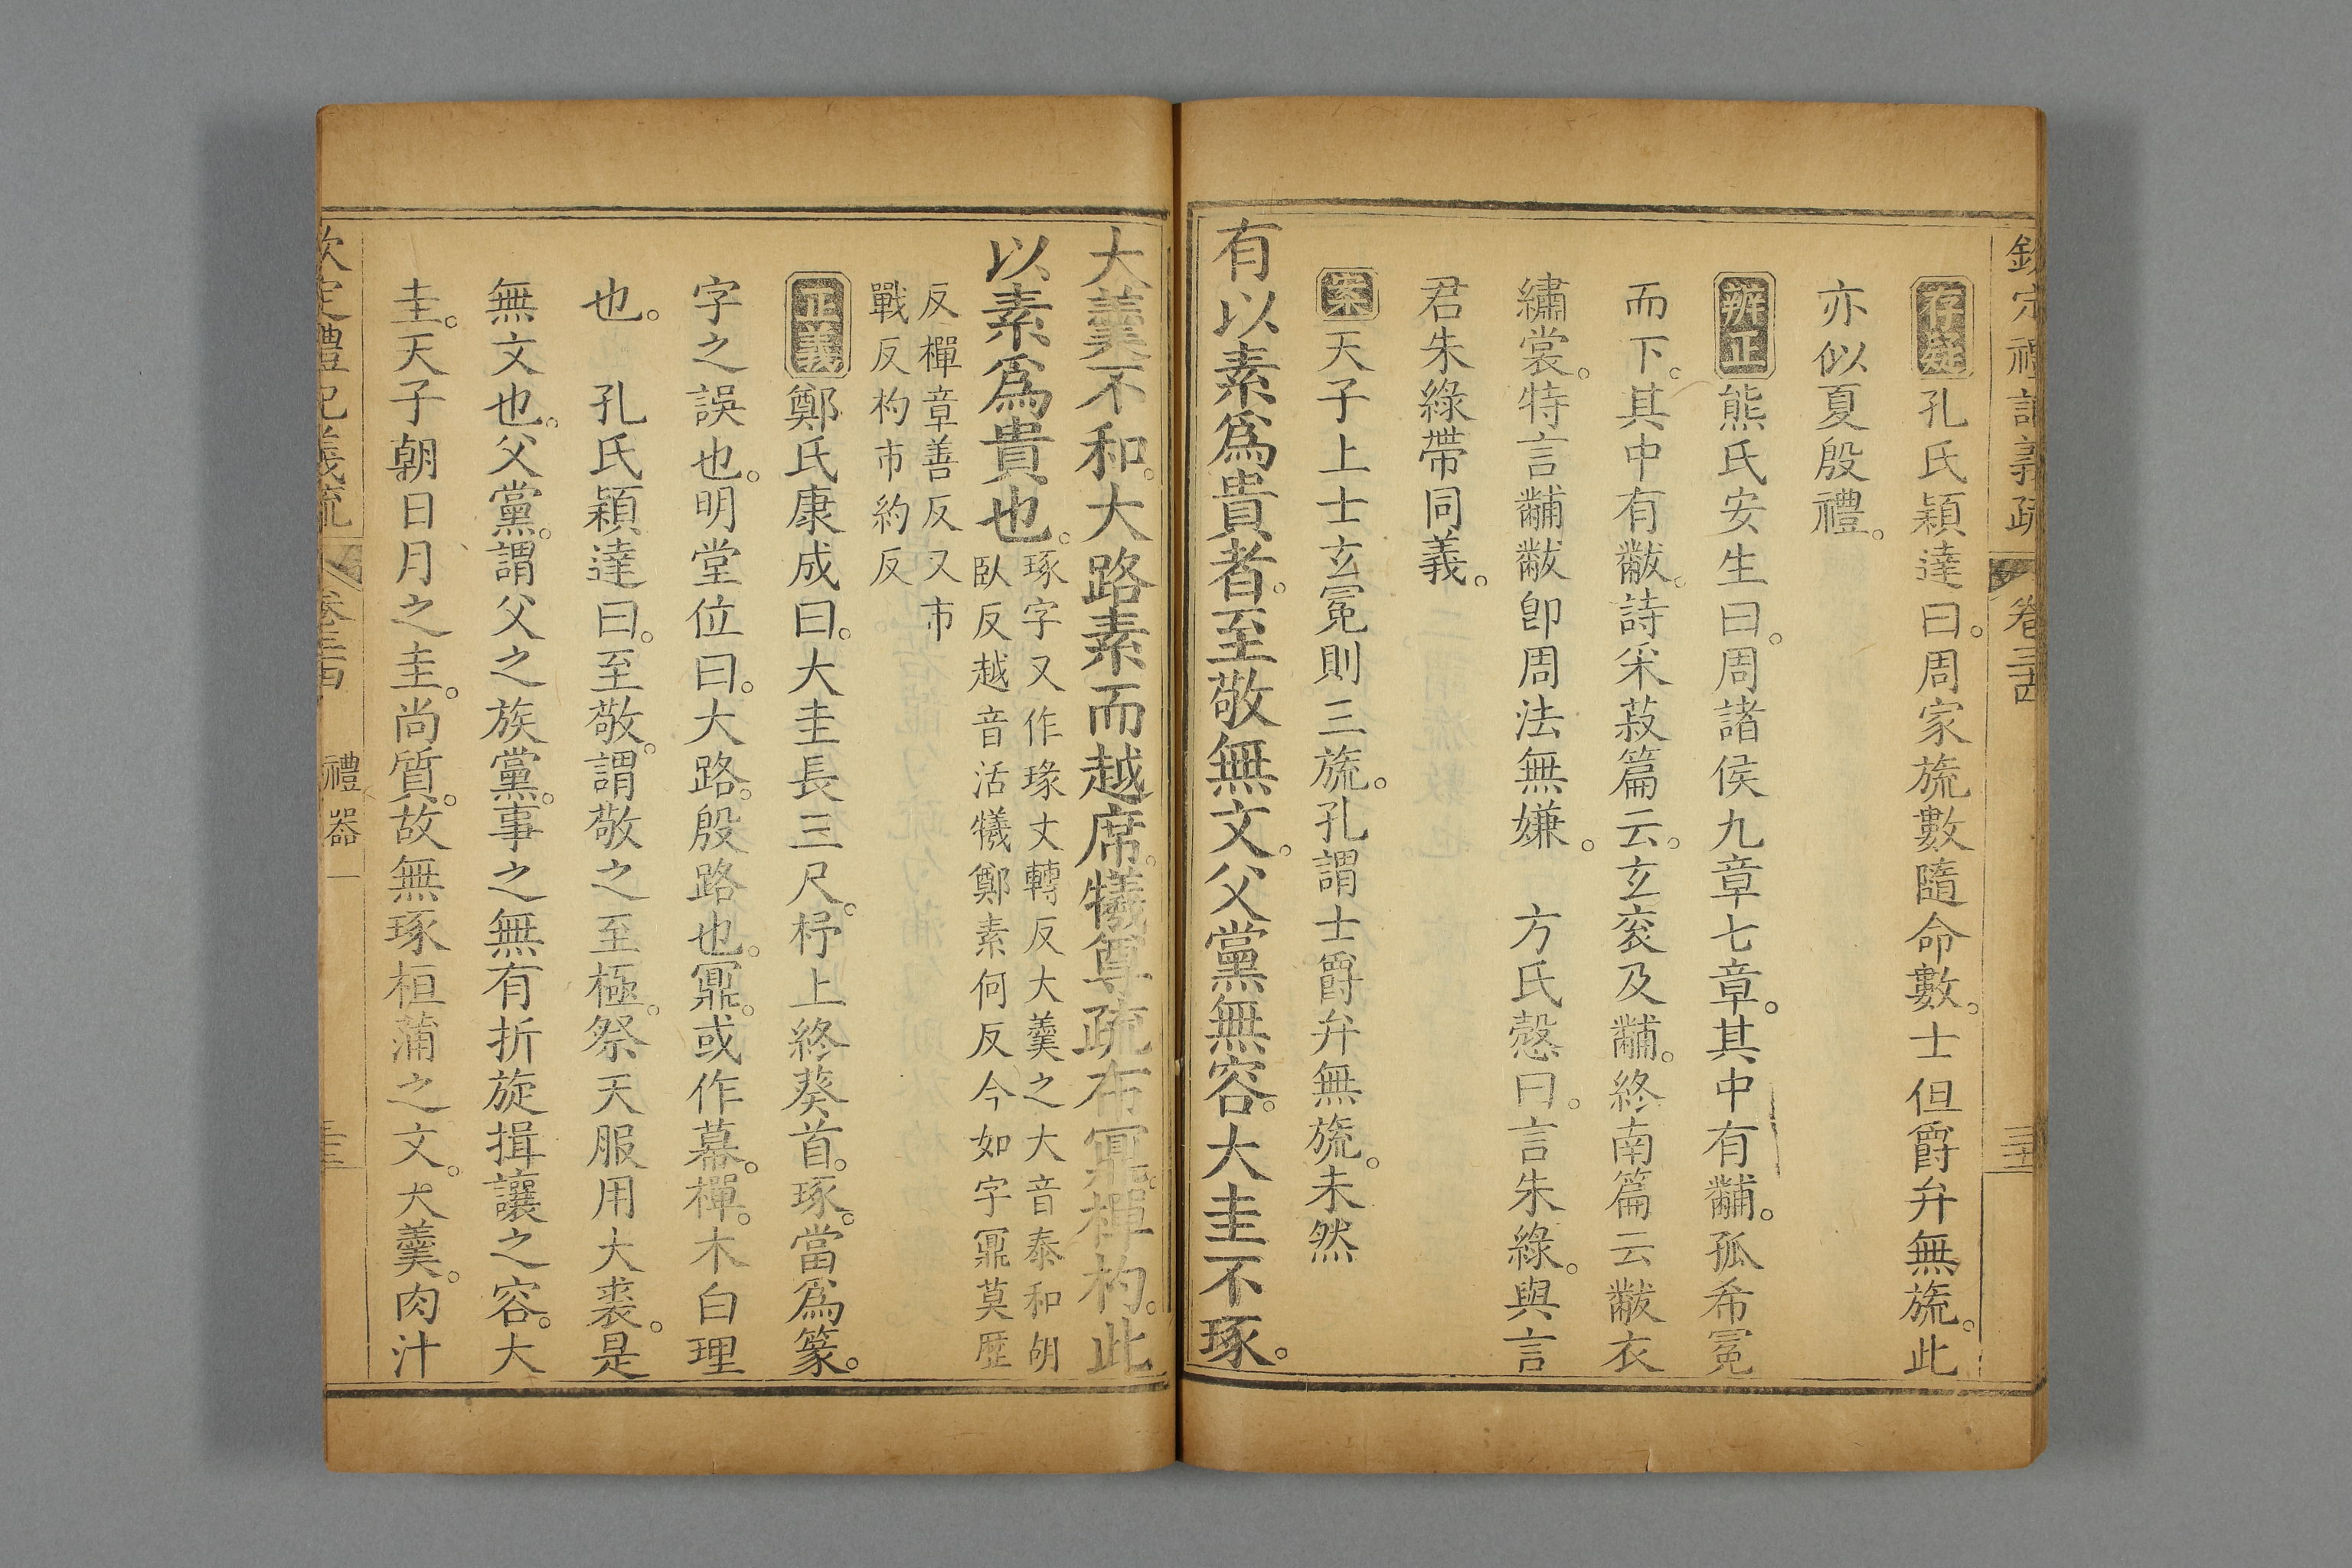 欽定禮記義疏 卷三十四
存疑孔氏穎達曰。周家旒數隨命數。士但爵弁無旒。此
亦似夏殷禮。
辨正熊氏安生曰。周諸侯九章七章。其中有黼。孤希冕
而下。其中有黻。詩采菽篇云。玄袞及黼。終南篇云黻衣
繡裳。特言黼黻卽周法無嫌。 方氏慤曰。言朱綠。與言
君朱綠帶同義。
案天子上士玄冕則三旒。孔謂士爵弁無旒。未然
有以素爲貴者。至敬無文。父黨無容。大圭不琢。
大羹不和。大路素而越席。犧尊疏布鼏。樿杓。此
以素爲貴也。琢字又作瑑丈轉反大羹之大音泰和胡
臥反越音活犧鄭素何反今如字鼏莫歷
反樿章善反又市
戰反杓市約反
正義鄭氏康成曰。大圭長三尺。杼上終葵首。琢。當爲篆。
字之誤也。明堂位曰。大路。殷路也。鼏。或作幕。樿。木白理
也。 孔氏穎達曰。至敬。謂敬之至極。祭天服用大裘。是
無文也。父黨。謂父之族黨。事之無有折旋揖讓之容。大
圭。天子朝日月之圭。尚質。故無琢桓蒲之文。大羹。肉汁
欽定禮記義疏 卷三十四 禮器一